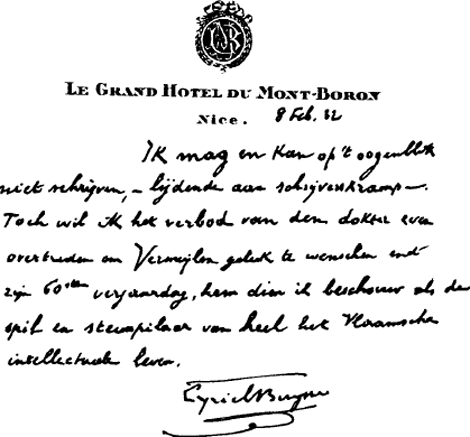 LE GRAND HOTEL DU MONT-BORON
Nice. 8 Feb. 32
Ik mag en kan op 't oogenblik
niet schrijven, – lijdende aan schrijverskramp –.
Toch wil ik het verbod van den dokter even
overtreden om Vermeylen geluk te wenschen met
zijn 60sten verjaardag, hem dien ik beschouw als de
spil en steunpilaar van heel het Vlaamsche
intellectueele leven.
Cyriel Buysse